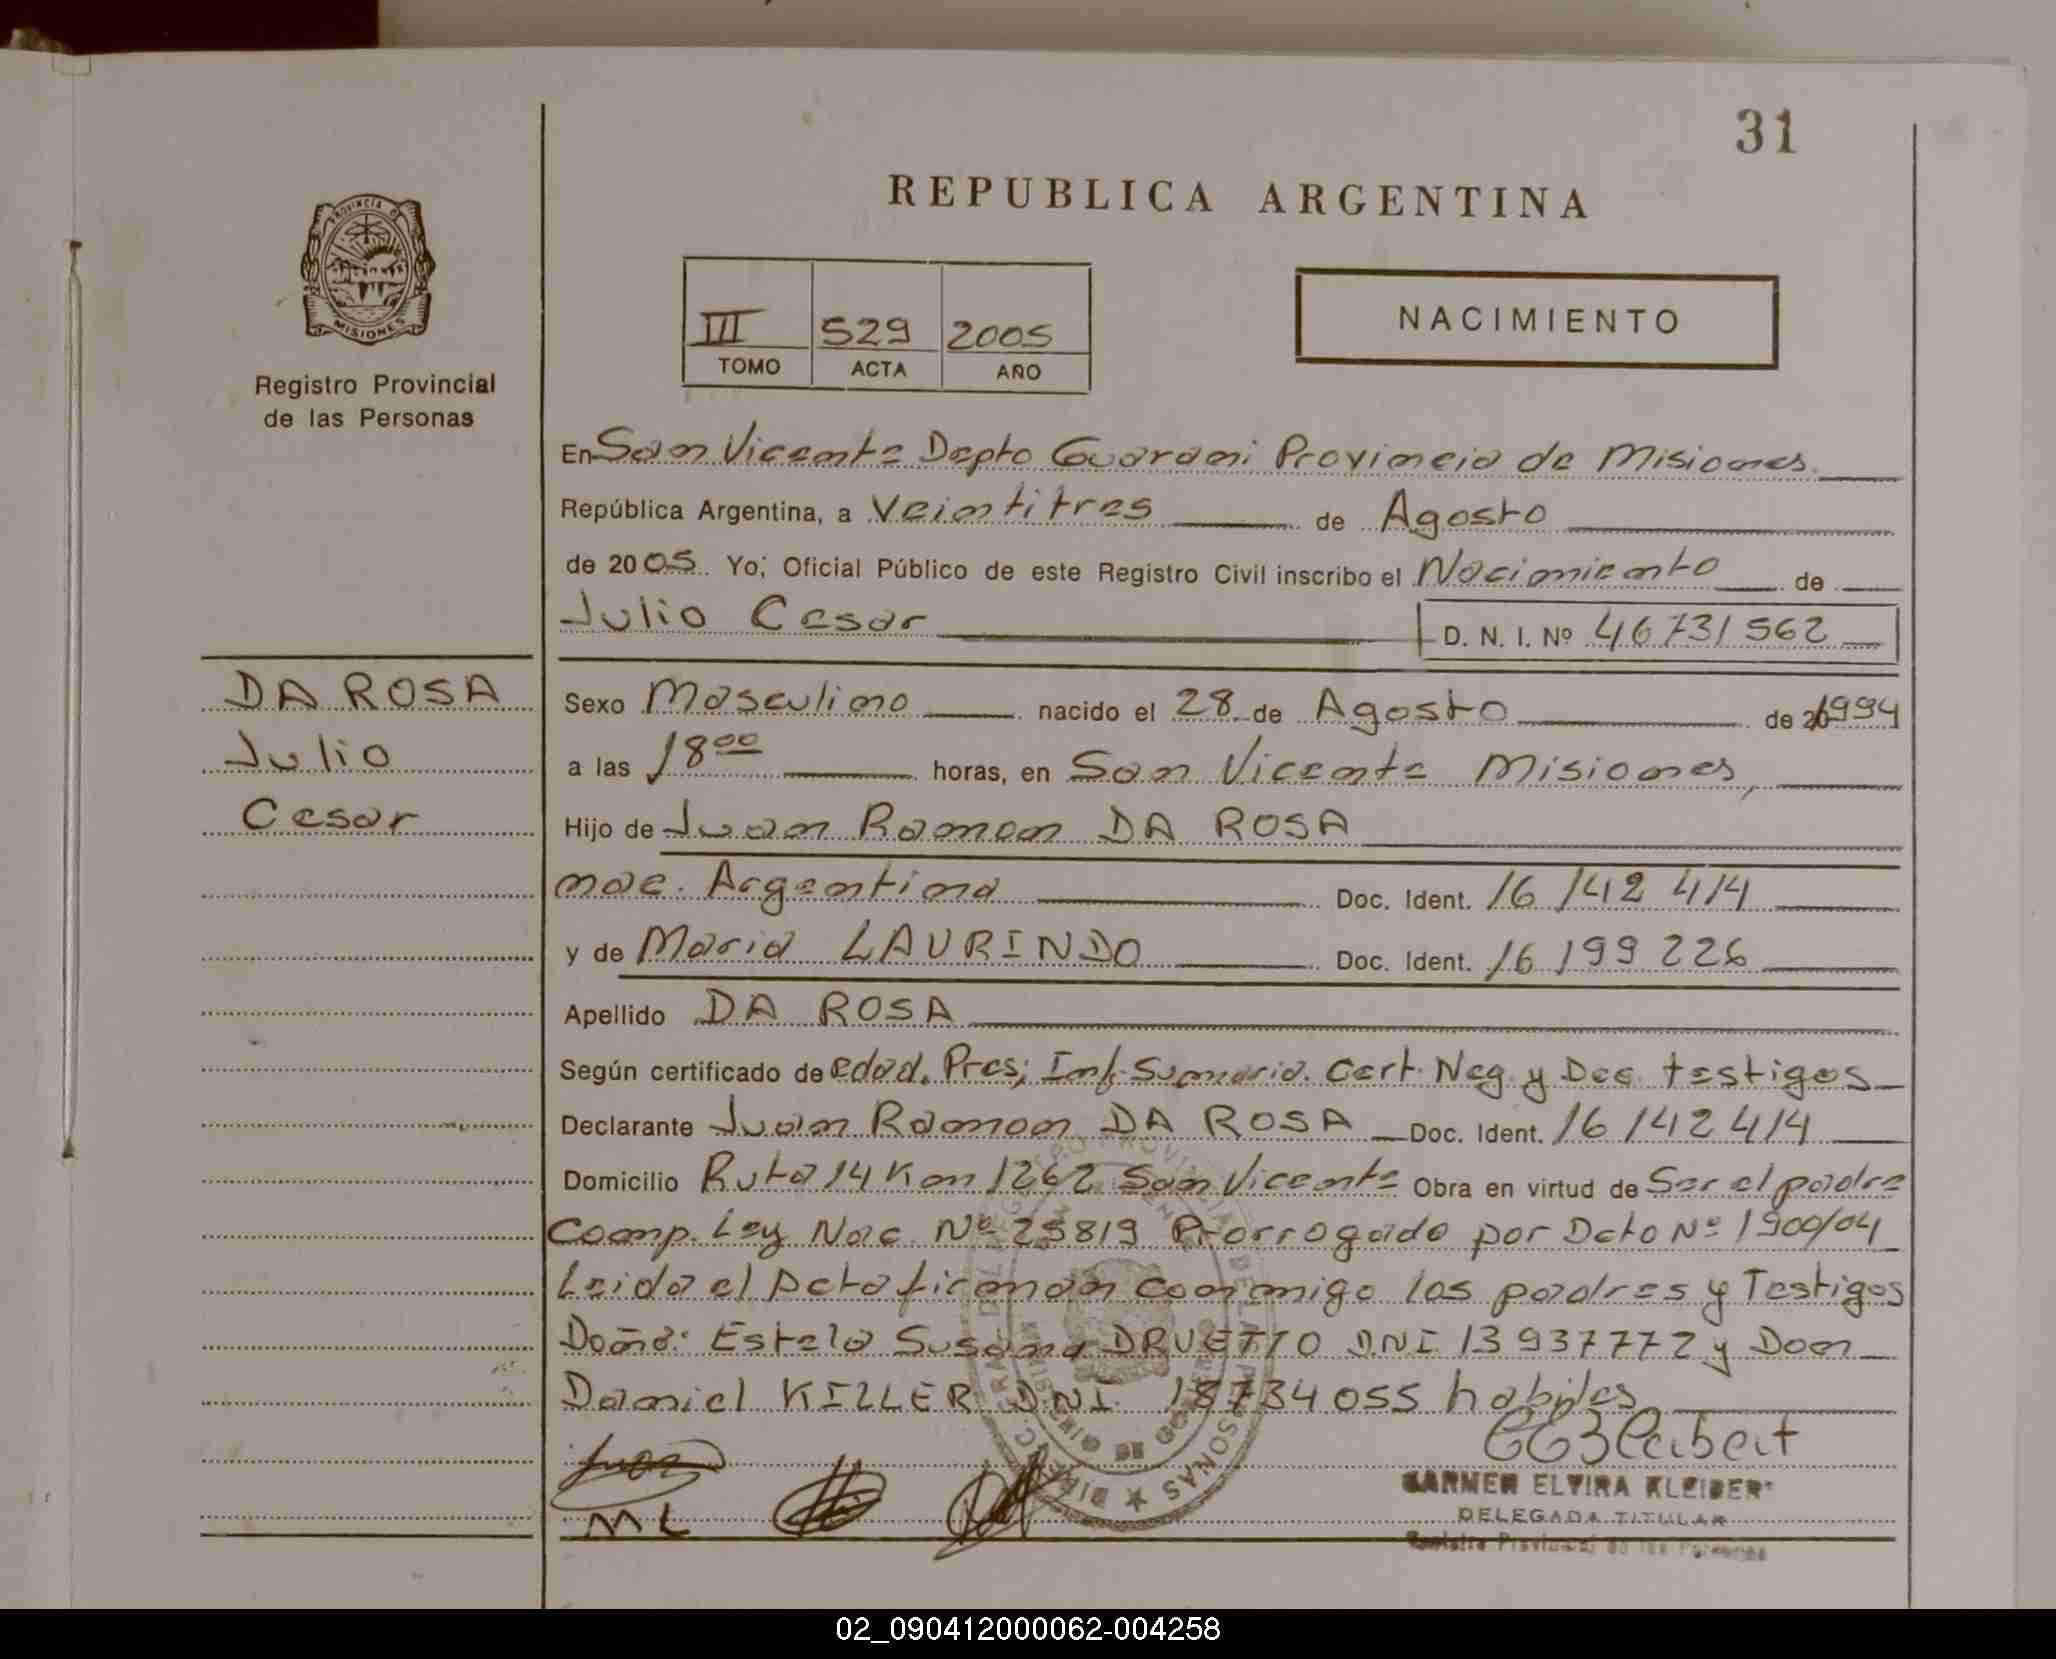 31
REPUBLICA ARGENTINA
PROVINCIA D
MISIONES
Registro Provincial
de las Personas
III 529 2005
TOMO ACTA AÑO
NACIMIENTO
En San Vicente Depto Guarani Provincia de Misiones
República Argentina, a Veintitres de Agosto
de 2005 Yo; Oficial Público de este Registro Civil inscribo el Nacimiento de
Julio Cesar D. N. I. Nº 46731562
DA ROSA
Julio
Cesar
Sexo Masculino nacido el 28 de Agosto de 1994
a las 18 00 horas, en San Vicente Misiones,
Hijo de Juan Ramon DA ROSA
nac. Argentina Doc. Ident. 16 142 414
y de Maria LAURINDO Doc. Ident. 16 199 226
Apellido DA ROSA
Según certificado de edad. Pres; Inf. Sumaria. Cert. Neg. y Dec. testigos
Declarante Juan Ramon DA ROSA Doc. Ident. 16 142 414
Domicilio Ruta 14 Km 1262 San Vicente Obra en virtud de Ser el padre
Comp. Ley Nac. Nº 25819 Prorrogado por Dcto Nº 1900/04
Leida el Acta firman conmigo los padres y Testigos
Doña: Estela Susana DRUETTO DNI 13 937772 y Don
Daniel KILLER DNI 18734055 habiles
CARMEN ELVIRA KLEIBER
DELEGADA TITULAR
Registro Provincial de las Personas
ML
02_090412000062-004258